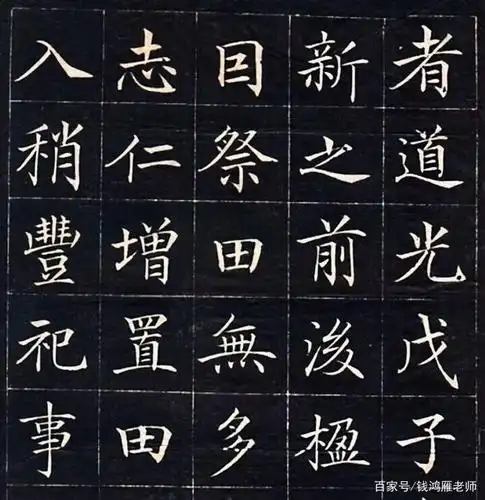 者道光戊子
新之前後楹
囙祭田無多
志仁增置田
入稍豐祀事
百家号/钱鸿雁老师